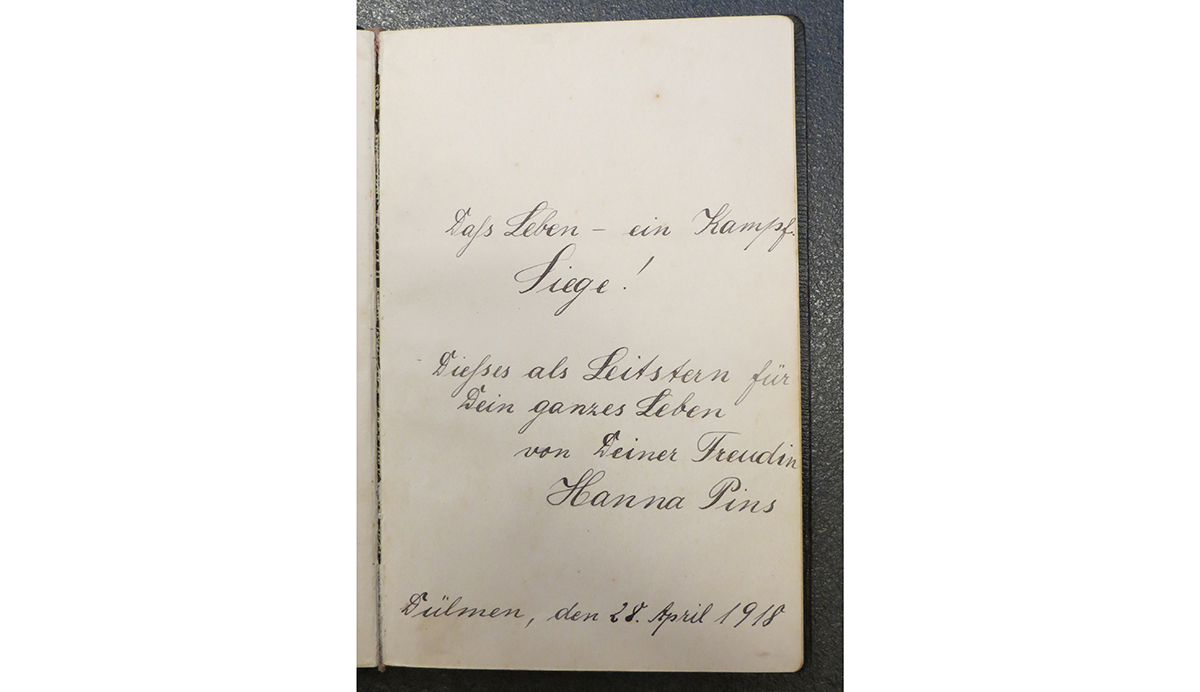 Daſs Leben – ein Kampf.
Siege!
Dieſses als Leitstern für
Dein ganzes Leben
von Deiner Freudin
Hanna Pins
Dülmen, den 28. April 1918